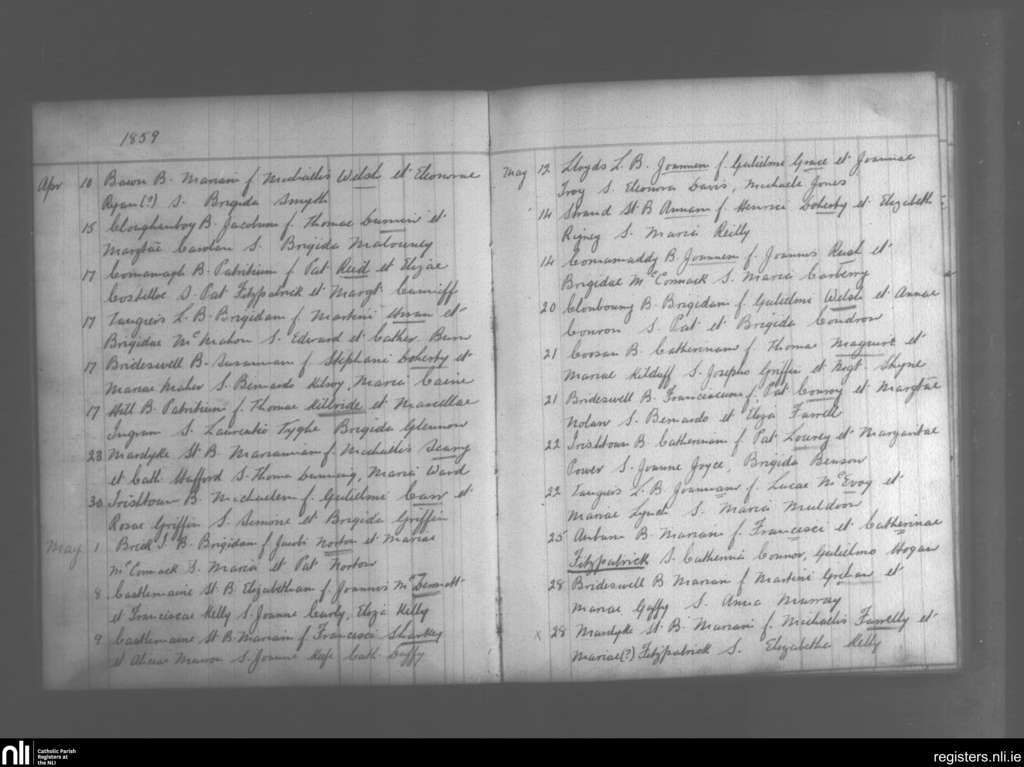 1859
Apr 10 Bawn B. Mariam f. Michaelis Welsh et Eleonorae
Ryan (?) S. Brigida Smyth
15 Cloghanboy B. Jacobum f. Thomae et
Margtae Carolan S. Brigida Molowney
17 Cornamagh B. Patritium f. Pat Reid et Elizae
Costelloe S. Pat Fitzpatrick et Margt. Cunniff
17 Tanguers L. B. Brigidam f. Martini et
Brigidae McMahon S. Edward et Cather. Burn
17 Brideswell B. Susannam f. Stephani Doherty et
Mariae Maher S. Bernardo Kilroy, Maria Caine
17 Hill B. Patritium f. Thomae Killbride et Marcellae
Ingram S. Laurentio Tyghe Brigida Glennon
23 Mardyke St B. Mariannam f. Michaelis Scary
et Cath. Stafford S. Thoma Lunning, Maria Ward
30 Irishtown B. Michaelem f. Gulielmi Carr et
Rosae Griffin S. Simone et Brigida Griffin
May 1 Brick S. B. Brigidam f. Jacobi Norton et Mariae
McCormack S. Maria et Pat Norton
8 Castlemaine St B. Elizabetham f. Joannis McDermott
et Franciscae Kelly S. Joanne Carty, Eliza Kelly
9 Castlemaine St B. Mariam f. Francisci Sharkey
et Aliciae Marron S. Joanne Cath. Duffy
May 12 Lloyds L. B. Joannem f. Gulielmi Grace et Joannae
Troy S. Eleonora Davis, Michaele Jones
14 Strand St B Annam f. Henrici Doherty et Elizabeth
Rigney S. Maria Reilly
14 Cornamaddy B. Joannem f. Joannis Rush et
Brigidae McCormack S. Maria Carberry
20 Clonbouny B. Brigidam f. Gulielmi Welsh et Annae
Conron S. Pat et Brigida Condron
21 Coosan B. Catherinam f. Thomae Maguire et
Mariae Kilduff S. Josepho Griffin et Mgt Skyne
21 Brideswell B. Franciscum f. Pat Conroy et Margtae
Nolan S. Bernardo et Eliza Farrell
22 Irishtown B. Catherinam f. Pat Lowrey et Margaritae
Power S. Joanne Joyce, Brigida Benson
22 Tanguers L. B. Joannam f. Lucae McEvoy et
Mariae Lynch S. Maria Muldoon
25 Auburn B. Mariam f. Francisci et Catherinae
Fitzpatrick S. Catherina Connor, Gulielmo Hogan
28 Brideswell B Mariam f. Martini Grehan et
Mariae Gaffy S. Anna Murray
x 28 Mardyke St. B. Mariam f. Michaelis Farrelly et
Mariae (?) Fitzpatrick S. Elizabetha Kelly
nli Catholic Parish
Registers at
the NLI
registers.nli.ie